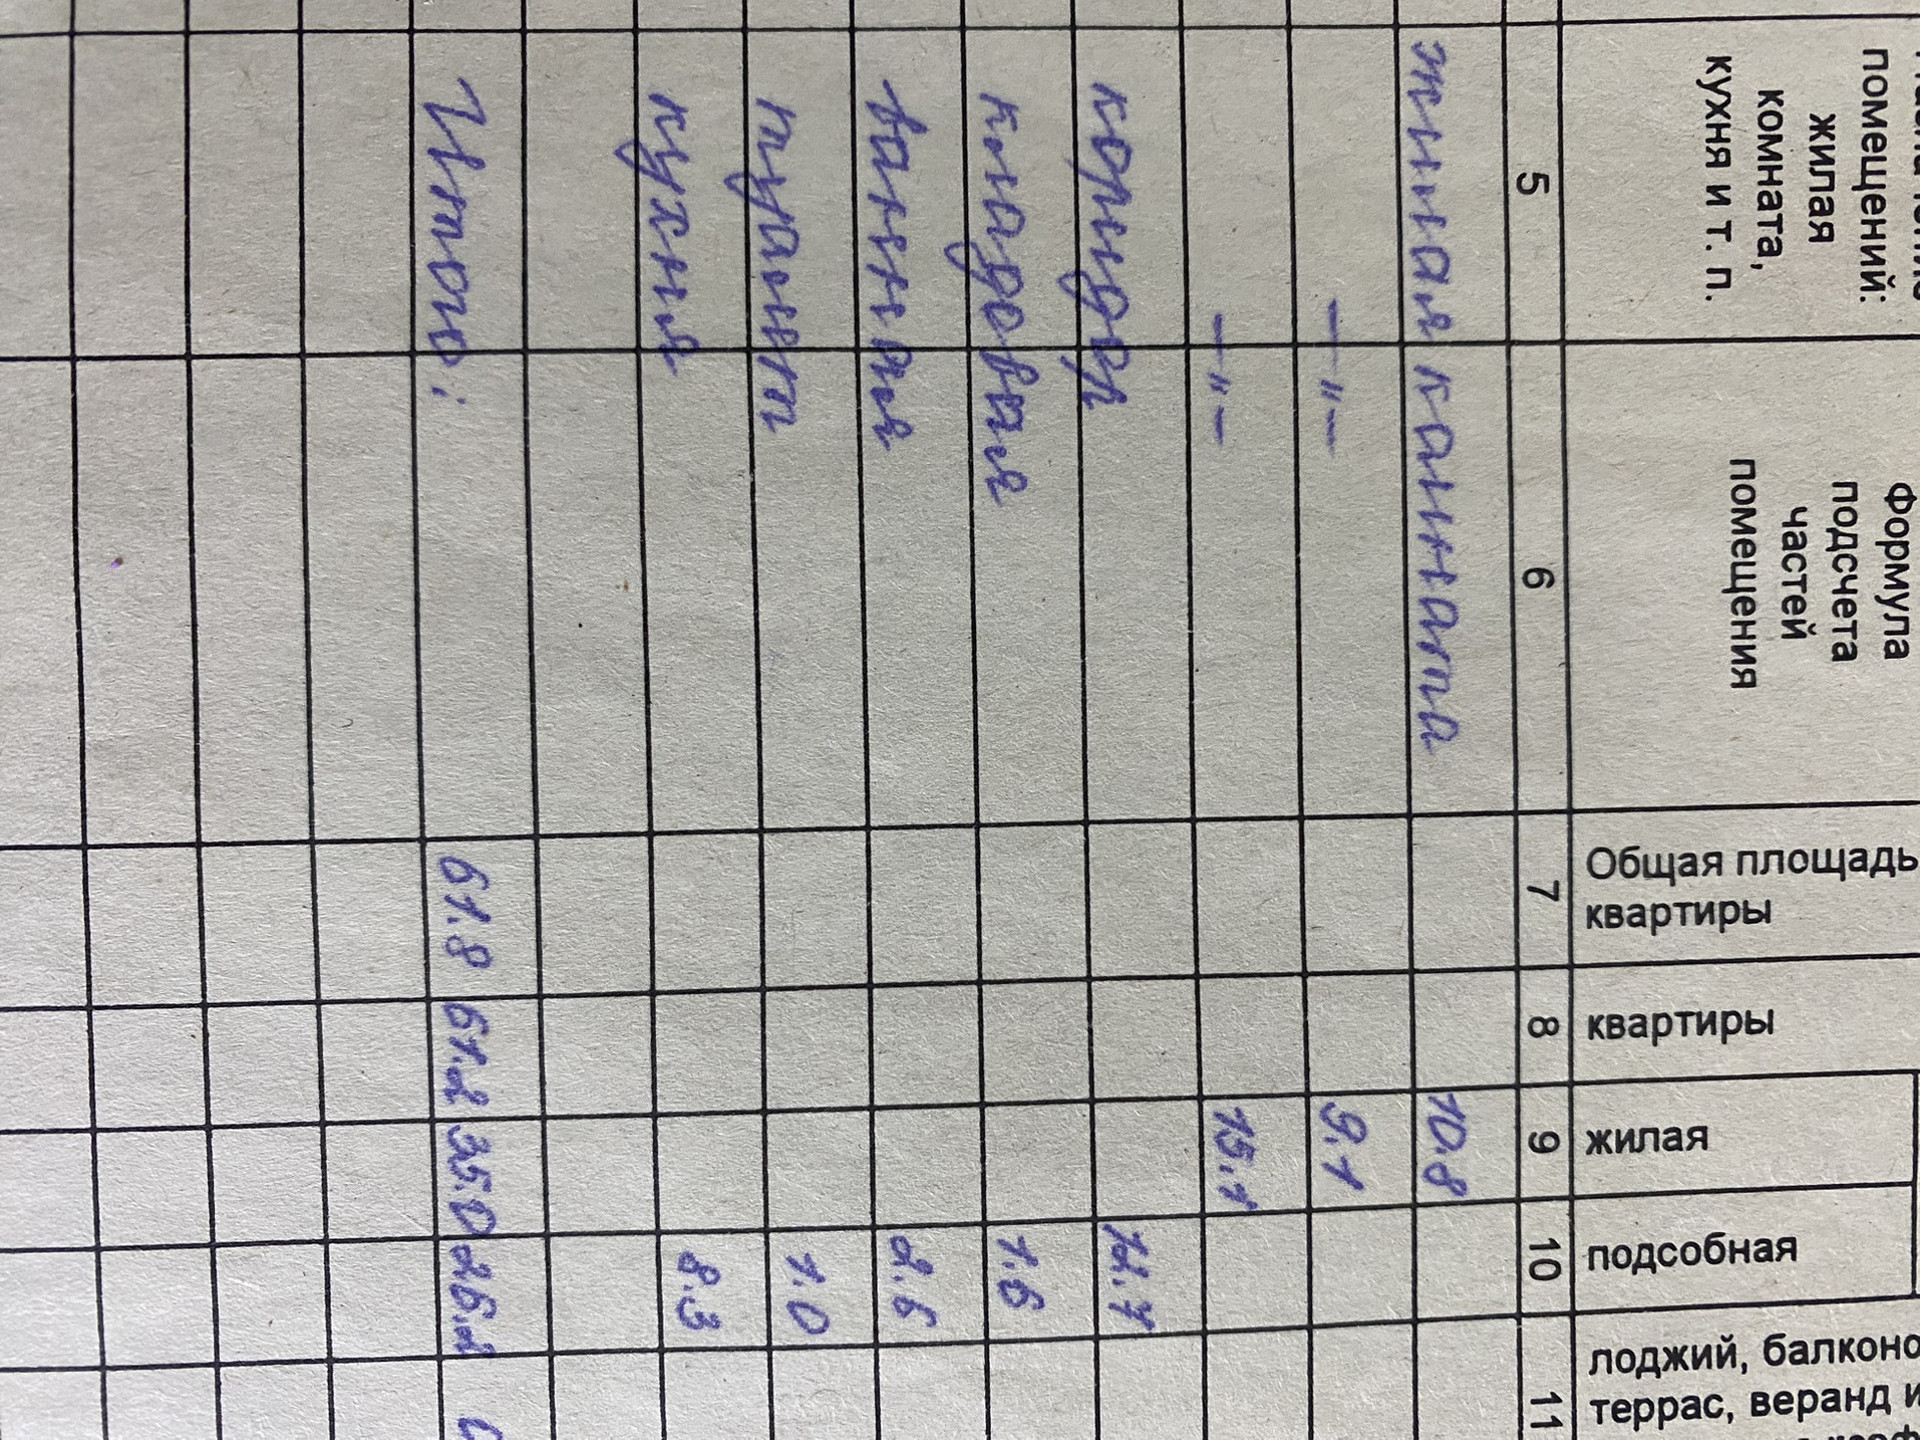 помещений:
жилая
комната,
кухня и т. п.
Формула
подсчета
частей
помещения
Общая площадь
квартиры
квартиры
жилая
подсобная
лоджий, балконо
террас, веранд и
5 6 7 8 9 10 11
жилая комната 10.8
—"— 9.1
—"— 15.1
коридор 12.7
кладовая 1.6
ванная 2.6
туалет 1.0
кухня 8.3
Итого: 61.8 61.2 35.0 26.2